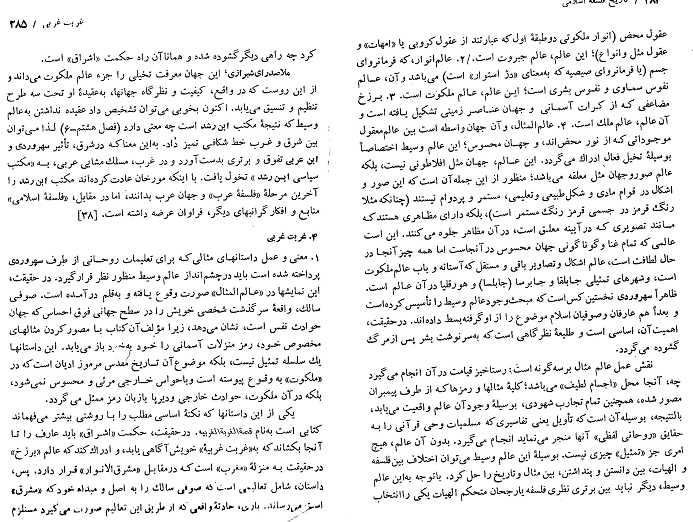 ۲۸۴ / تاریخ فلسفه اسلامی
عقول محض (انوار ملکوتی دوطبقهٔ اول که عبارتند از عقول کروبی یا «امهات» و
عقول مثل وانواع)؛ این عالم، عالم جبروت است. ۲. عالم انوار، که فرمانروای
جسم (یا فرمانروای صیصیه که بمعنای «دژ استوار» است) می‌باشد وآن، عالم
نفوس سماوی و نفوس بشری است؛ این عالم، عالم ملکوت است. ۳. برزخ
مضاعفی که از کرات آسمانی و جهان عناصر زمینی تشکیل یافته است و
آن عالم ملک است. ۴. عالم‌المثال، وآن جهان واسطه است بین عالم معقول
موجوداتی که از نور محض‌اند، و جهان محسوس؛ این عالم وسیط اختصاصاً
بوسیلهٔ تخیل فعال ادراک می‌گردد. این عالم، جهان مثل افلاطونی نیست، بلکه
عالم صوروجهان مثل معلقه می‌باشد؛ منظور از این جمله آن است که این صور و
اشکال در قوام مادی و شکل‌طبیعی وتعلیمی، مستمر و پردوام نیستند (چنانکه مثلا
رنگ قرمز در جسمی قرمز رنگ مستمر است)، بلکه دارای مظاهری هستند که
مانند تصویری که در آیینه معلق است، در آن مظاهر جلوه می‌کنند. این است
عالمی که تمام غنا و گوناگونی جهان محسوس در آنجاست اما همه چیز آنجا در
حال لطافت است، عالم اشکال و تصاویر باقی و مستقل که آستانه و باب عالم ملکوت
است، وشهرهای تمثیلی جابلقا و جابرسا (جابلسا) و هورقلیا در آن عالم است.
ظاهراً سهروردی نخستین کس است که مبحث وجود عالم وسیط را تأسیس کرده است
و بعداً هم عارفان وصوفیان اسلام موضوع را از او گرفته بسط داده‌اند. درحقیقت،
اهمیت آن، اساسی است و طلیعهٔ نظرگاهی است که به سرنوشت بشر پس ازمرگ
گشوده می‌گردد.
نقش عمل عالم مثال برسه‌گونه است: رستاخیز قیامت در آن انجام می‌گیرد
چه، آنجا محل «اجسام لطیف» می‌باشد؛ کلیهٔ مثالها و رمزها که از طرف پیمبران
مصور شده، همچنین تمام تجارب شهودی، بوسیلهٔ وجود آن عالم واقعیت می‌یابد،
بالنتیجه، بوسیله آن است که تأویل یعنی تفاسیری که مسلمیات وحی قرآنی را به
حقایق «روحانی لفظی» آنها منجر می‌نماید انجام می‌گیرد. بدون آن عالم، هیچ
امری جز «تمثیل» چیزی نیست. بوسیلهٔ این عالم وسیط می‌توان اختلاف بین فلسفه
و الهیات، بین دانستن و پنداشتن، بین مثال و تاریخ را حل کرد. باتوجه به این عالم
وسیط، دیگر نباید بین برتری نظری فلسفه یا رجحان متحکم الهیات یکی را انتخاب
غربت غربی / ۲۸۵
کرد چه راهی دیگر گشوده شده و همانا آن راه حکمت «اشراق» است.
ملاصدرای شیرازی؛ این جهان معرفت تخیلی را جزء عالم ملکوت می‌داند و
از این روست که در واقع، کیفیت و نظرگاه جهانها، به عقیدهٔ او تحت سه طرح
تنظیم و تنسیق می‌یابد. اکنون بخوبی می‌توان تشخیص داد عقیده نداشتن به عالم
وسیط که نتیجهٔ مکتب ابن رشد است چه معنی دارد (فصل هشتم–۶) لذا می‌توان
بین شرق و غرب خط شکافی تمیز داد. به این معنا که در شرق، تأثیر سهروردی و
ابن عربی تفوق و برتری بدست آورد و در غرب، مسلک مشایی عربی، به «مکتب
سیاسی ابن رشد» تحول یافت. با اینکه مورخان عادت کرده‌اند مکتب ابن رشد را
آخرین مرحلهٔ «فلسفهٔ عرب» و جهان عرب بدانند، اما در مقابل، «فلسفهٔ اسلامی»
منابع و افکار گرانبهای دیگر، فراوان عرضه داشته است. [۳۸]
۴. غربت غربی
۱. معنی و عمل داستانهای مثالی که برای تعلیمات روحانی از طرف سهروردی
پرداخته شده است باید در چشم‌انداز عالم وسیط منظور نظر قرار گیرد. در حقیقت،
این نمایشها در «عالم‌المثال» صورت وقوع یافته و به قلم درآمده است. صوفی
سالک، واقعهٔ سرگذشت شخصی خویش را در سطح جهانی فوق احساس که جهان
حوادث نفس است، نشان می‌دهد، زیرا مؤلف آن کتاب با مصور کردن مثالهای
مخصوص خود، رمز منزلات آسمانی را خود بخود باز می‌یابد. این داستانها
یک سلسله تمثیل نیست، بلکه موضوع آن تاریخ مقدس مرموز ادیان است که در
«ملکوت» به وقوع پیوسته است و باحواس خارجی مرئی و محسوس نمی‌شود،
بلکه در آن ملکوت، حوادث خارجی ودیرپا با زبان رمز ممثل می‌گردد.
یکی از این داستانها که نکتهٔ اساسی مطلب را با روشنی بیشتر می‌فهماند
کتابی است به‌نام قصة‌الغربة‌الغربیه. در حقیقت، حکمت «اشراق» باید عارف را تا
آنجا بکشاند که به «غربت غربیهٔ» خویش آگاهی یابد، و ادراک کند که عالم «برزخ»
در حقیقت به منزلهٔ «مغرب» است که در مقابل «مشرق‌الانوار» قرار دارد. پس،
داستان، شامل تعالیمی است که صوفی سالک را به اصل و مبداء خود که «مشرق»
است می‌رساند. باری، حادثهٔ واقعی که از طریق این تعالیم صورت می‌گیرد مستلزم